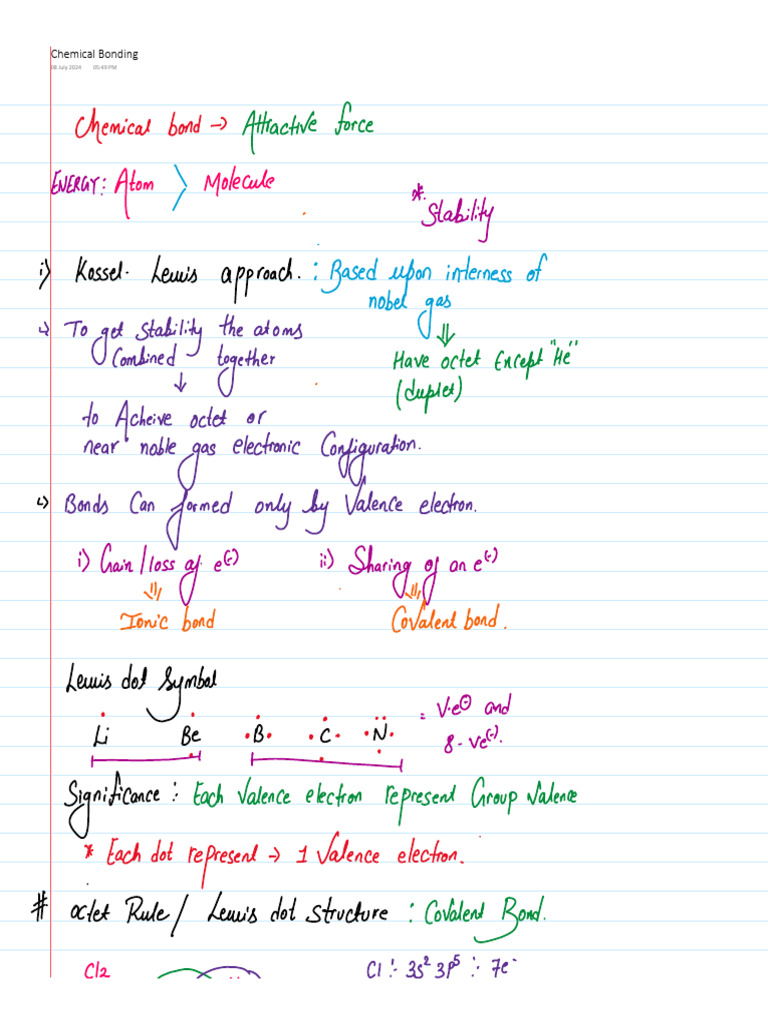 Chemical Bonding
08 July 2024 05:49 PM
Chemical bond → Attractive force
ENERGY: Atom > Molecule
* Stability
i) Kossel- Lewis approach. : Based upon interness of
nobel gas
↳ To get stability the atoms
Combined together
⇓
Have octet Except "He"
(duplet)
↓
to Acheive octet or
near noble gas electronic Configuration.
↳ Bonds Can formed only by Valence electron.
i) Gain/loss of e(-) ii) Sharing of an e(-)
⇓ ⇓
Ionic bond Covalent bond.
Lewis dot Symbol
Li Be B C N = V.e⊖ and
8-ve(-).
Significance : Each Valence electron represent Group Valence
* Each dot represent → 1 Valence electron.
# octet Rule / Lewis dot structure : Covalent Bond.
Cl2 Cl :- 3s² 3p⁵ :- 7e⁻